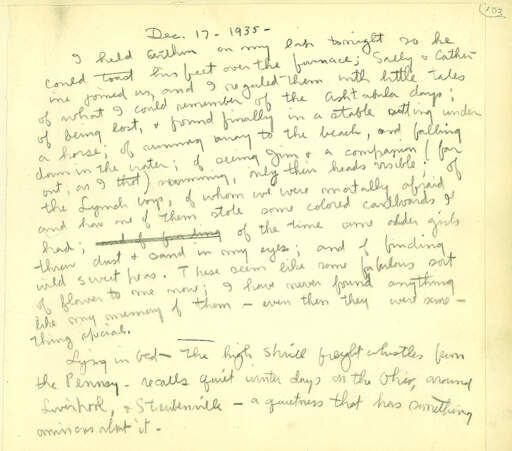 103
Dec. 17 - 1935 -
I held Arthur on my lap tonight so he
could toast his feet over the furnace; Sally & Cather-
ine joined us, and I regaled them with little tales
of what I could remember of the Ashtabula days;
of being lost, & found finally in a stable sitting under
a horse; of running away to the beach, and falling
down in the water; of seeing Jim & a companion (far
out, as I thot) swimming, only their heads visible; of
the Lynch boys, of whom we were mortally afraid
and how one of them stole some colored cardboards I
had; and of finding of the time some older girls
threw dust & sand in my eyes; and of finding
wild sweet peas. These seem like some fabulous sort
of flower to me now; I have never found anything
like my memory of them - even then they were some-
thing special.
Lying in bed - The high shrill freight whistles from
the Pennsy - recalls quiet winter days on the Ohio, around
Liverpool, & Steubenville - a quietness that has something
ominous about it -